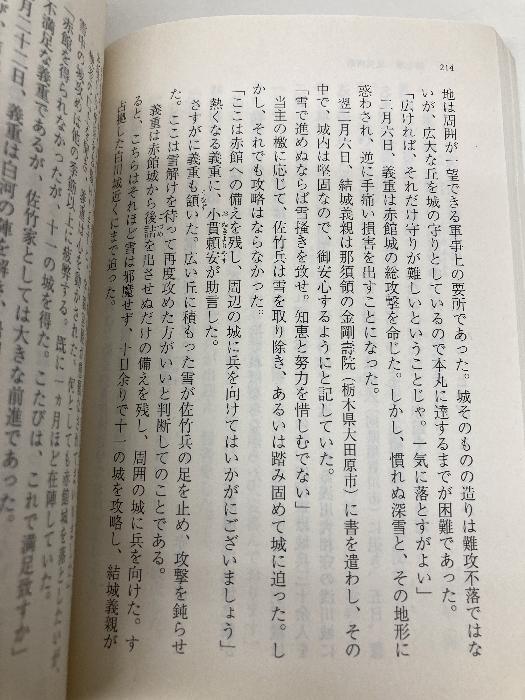 214
地は周囲が一望できる軍事上の要所であった。城そのものの造りは難攻不落ではな
いが、広大な丘を城の守りとしているので本丸に達するまでが困難であった。
「広ければ、それだけ守りが難しいということじゃ。一気に落とすがよい」
二月六日、義重は赤館城の総攻撃を命じた。しかし、慣れぬ深雪と、その地形に
惑わされ、逆に手痛い損害を出すことになった。
翌二月六日、結城義親は那須領の金剛壽院（栃木県大田原市）に書を遣わし、その
中で、城内は堅固なので、御安心するようにと記していた。
「雪で進めぬならば雪掻きを致せ。知恵と努力を惜しむでない」
当主の檄に応じて、佐竹兵は雪を取り除き、あるいは踏み固めて城に迫った。し
かし、それでも攻略はならなかった。
「ここは赤館への備えを残し、周辺の城に兵を向けてはいかがにございましょう」
熱くなる義重に、小貫頼安が助言した。
さすがに義重も頷いた。広い丘に積もった雪が佐竹兵の足を止め、攻撃を鈍らせ
た。ここは雪解けを待って再度攻めた方がいいと判断してのことである。
義重は赤館城から後詰を出させぬだけの備えを残し、周囲の城に兵を向けた。す
ると、こちらはそれほど雪は邪魔せず、十日余りで十一の城を攻略し、結城義親が
占拠した白川城近くにまで迫った。
雪中の城攻めは他の季節以上に疲弊する。既に
ヵ月ほど在陣していた。
「赤館を得られなかったが、十一の城を得た。こたびは、これで満足致すか」
不満足な義重であるが、佐竹家としては大きな前進であった。
月二十二日、義重は白河の陣を解き、